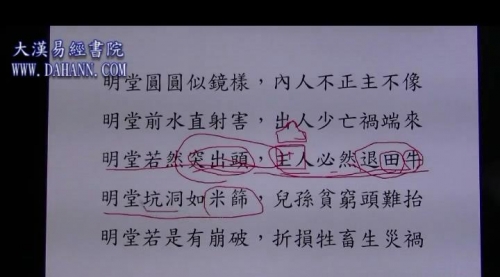 大漢易經書院
WWW.DAHANN.COM
明堂圓圓似鏡樣，內人不正主不像
明堂前水直射害，出人少亡禍端來
明堂若然突出頭，主人必然退田牛
明堂坑洞如米篩，兒孫貧窮頭難抬
明堂若是有崩破，折損牲畜生災禍